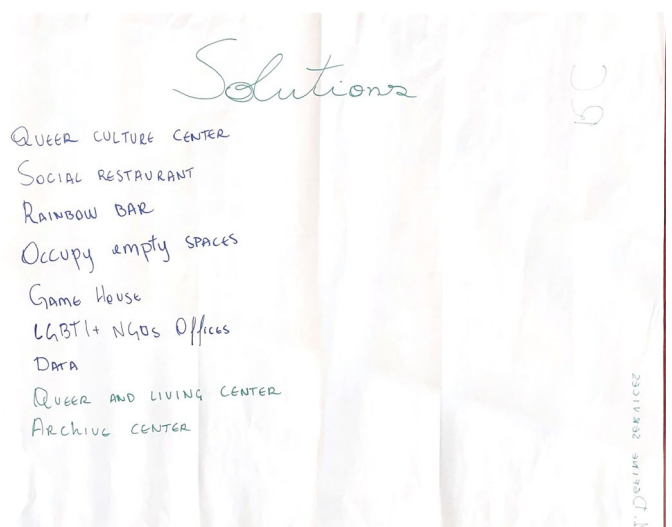 Solutions
QUEER CULTURE CENTER
SOCIAL RESTAURANT
RAINBOW BAR
OCCUPY empty SPACES
GAME HOUSE
LGBTI+ NGOs Offices
DATA
QUEER AND LIVING CENTER
ARCHIVE CENTER